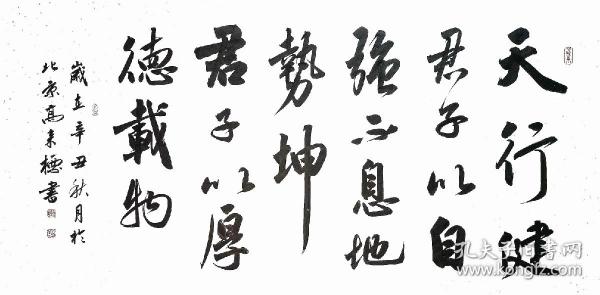 天行健
君子以自
強不息地
勢坤
君子以厚
德載物
歲在辛丑秋月於
北京高来穩書
孔夫子旧书网
www.kongfz.com